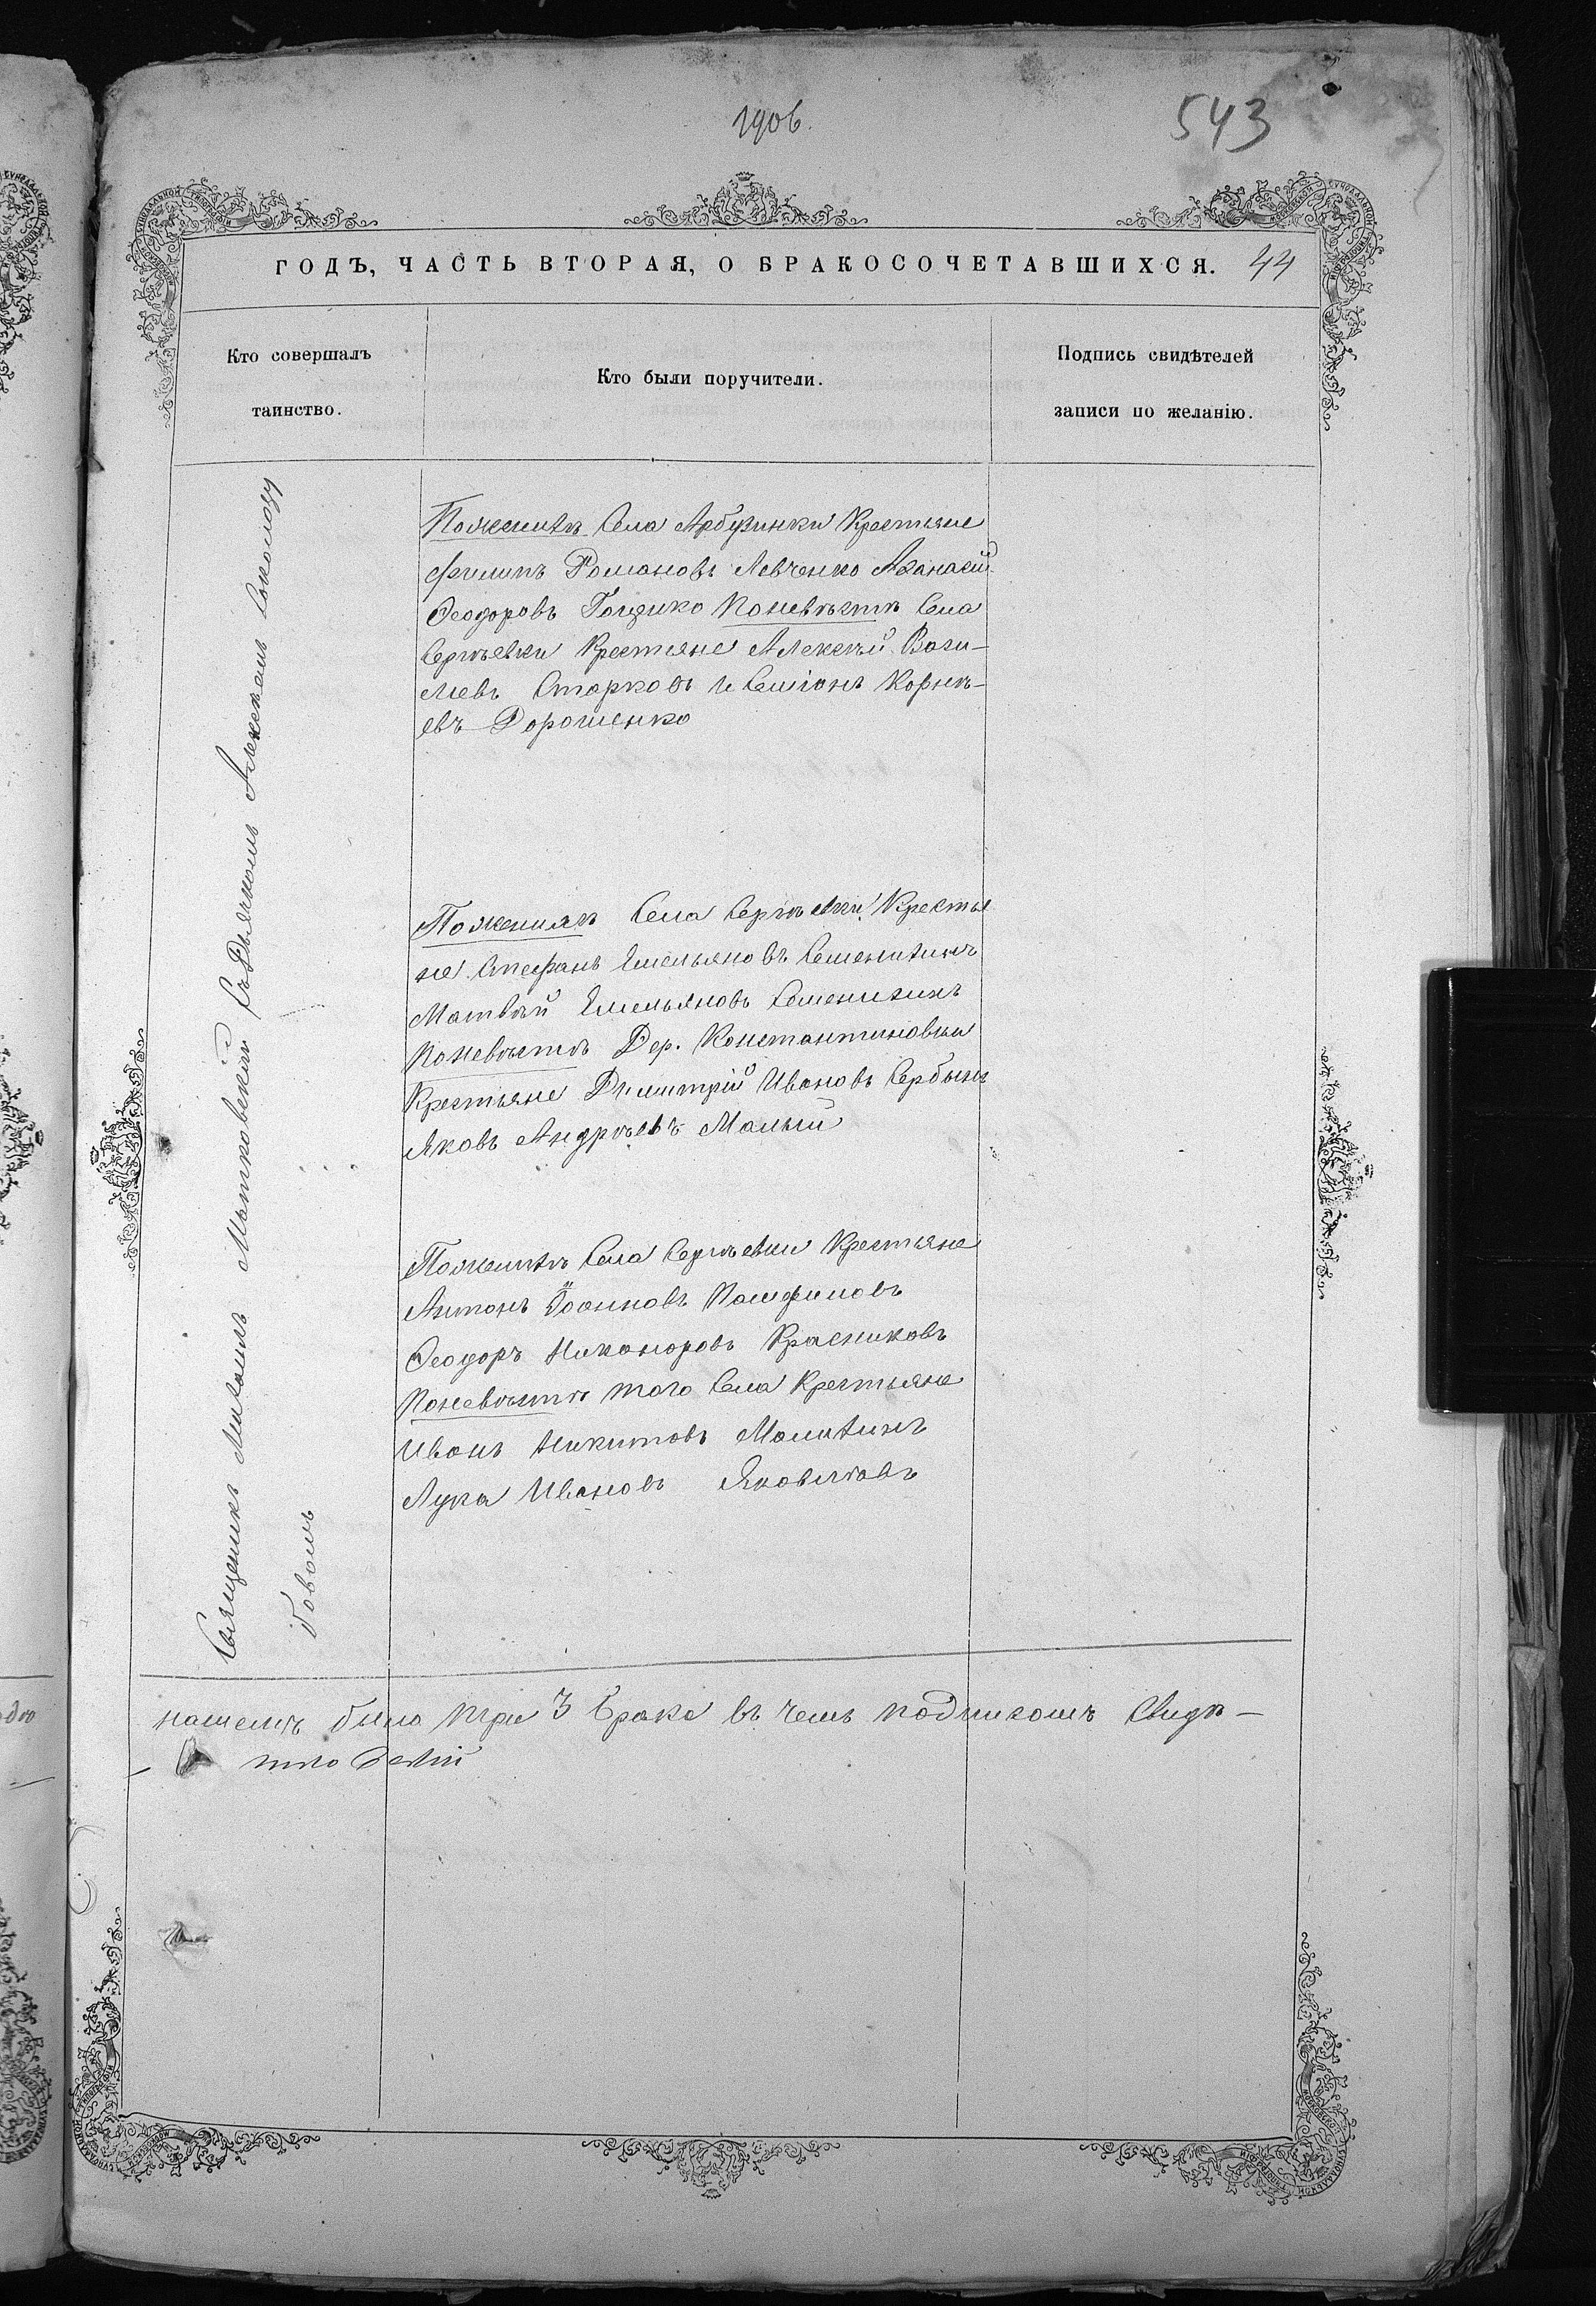 1906.
543
ГОДЪ, ЧАСТЬ ВТОРАЯ, О БРАКОСОЧЕТАВШИХСЯ. 44
Кто совершалъ
таинство.
Кто были поручители.
Подпись свидѣтелей
записи по желанію.
Священикъ Михаилъ Мытковскій съ Дьячкомъ Алексѣемъ Соколову
бовомъ
Поженихѣ Села Арбузинки Крестяне
Филипъ Романовъ Левченко Аѳанасій
Ѳеодоровъ Поневѣстѣ Села
Сергѣевки Крестяне Алексѣй Васи-
лиевъ Старковъ и Семіонъ Корнѣ-
евъ Дорошенко
Поженихѣ Села Сергѣевки Крестья
не Стефанъ Емельяновъ Семенихинъ
Матвѣй Емельяновъ Семенихинъ
Поневѣстѣ Дер. Константиновки
Крестьяне Димитрій Ивановъ Сербинъ
Яковъ Андрѣевъ Малый
Поженихѣ Села Сергѣевки Крестяне
Антонъ Іоанновъ Памфиловъ
Ѳеодоръ Никоноровъ Красниковъ
Поневѣстѣ того Села Крестьяне
Иванъ Никитовъ Малихинъ
Лука Ивановъ Яковлѣвъ
нашемъ было три 3 брака въ чемъ подпикомъ Свидѣ-